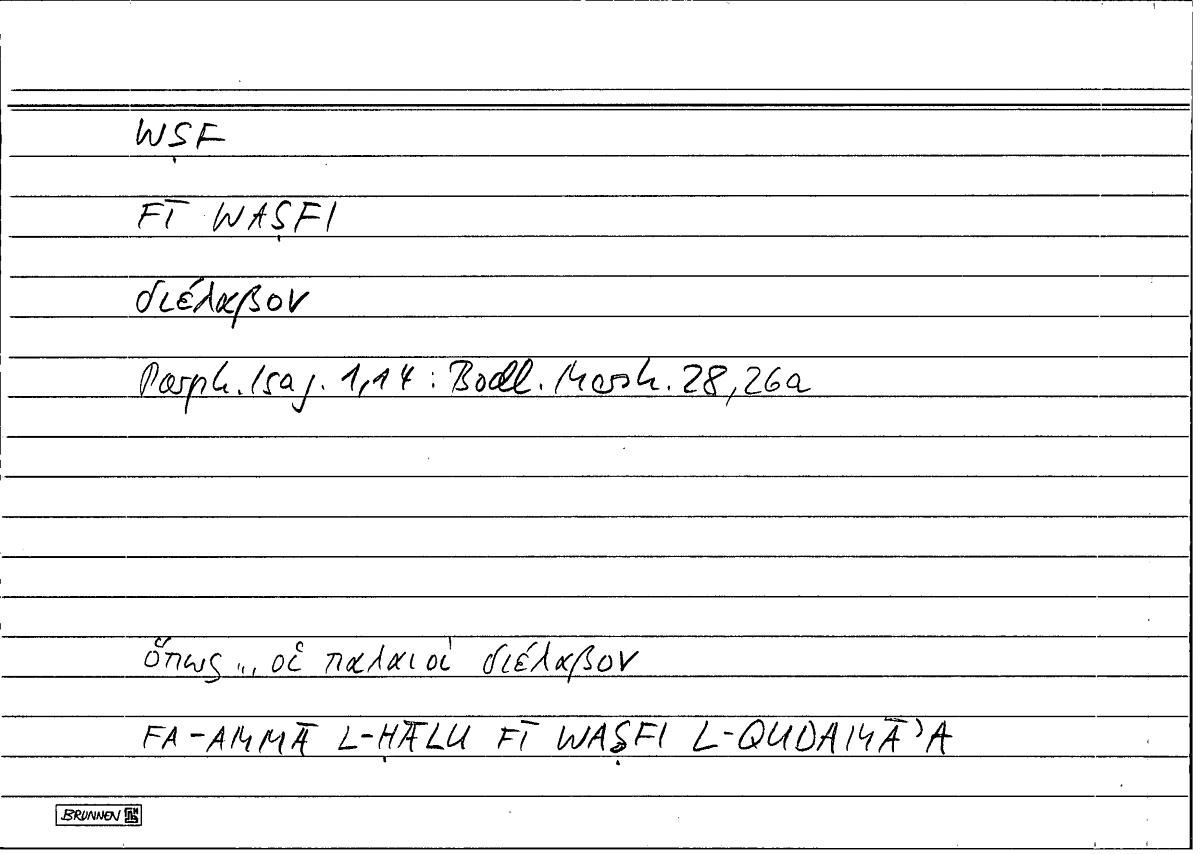 WṢF
FĪ WAṢFI
διέλαβον
Porph. Isag. 1,14 : Bodl. Marsh. 28,26a
ὅπως ... οἱ παλαιοὶ διέλαβον
FA-AMMĀ L-ḤĀLU FĪ WAṢFI L-QUDAMĀʾA
BRUNNEN